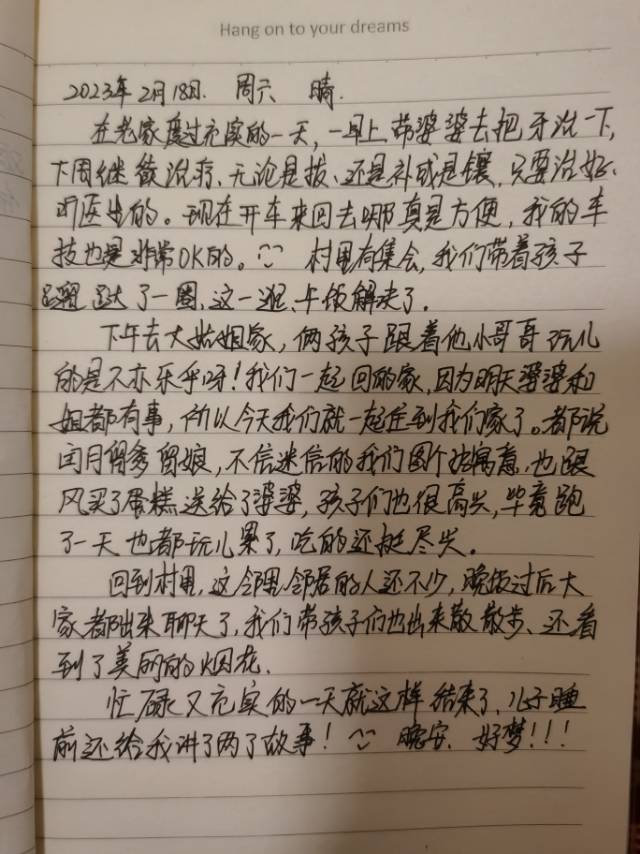 Hang on to your dreams
2023年2月18日. 周六 晴.
在老家度过充实的一天,一早上带婆婆去把牙治一下,
下周继续治疗、无论是拔、还是补或是镶,只要治好、
听医生的。现在开车来回去哪真是方便,我的车
技也是非常OK的。 村里有集会,我们带着孩子
蹓跶了一圈,这一逛、午饭解决了.
下午去大姑姐家,俩孩子跟着他小哥哥玩儿
的是不亦乐乎呀!我们一起回的家,因为明天婆婆和
姐都有事,所以今天我们就一起住到我们家了。都说
闰月留爹留娘,不信迷信的我们图个好寓意,也跟
风买了蛋糕送给了婆婆,孩子们也很高兴,毕竟跑
了一天也都玩儿累了,吃的还挺尽兴。
回到村里,这邻里邻居的人还不少,晚饭过后大
家都出来聊天了,我们带孩子们也出来散散步、还看
到了美丽的烟花.
忙碌又充实的一天就这样结束了,儿子睡
前还给我讲了两个故事! 晚安. 好梦!!!